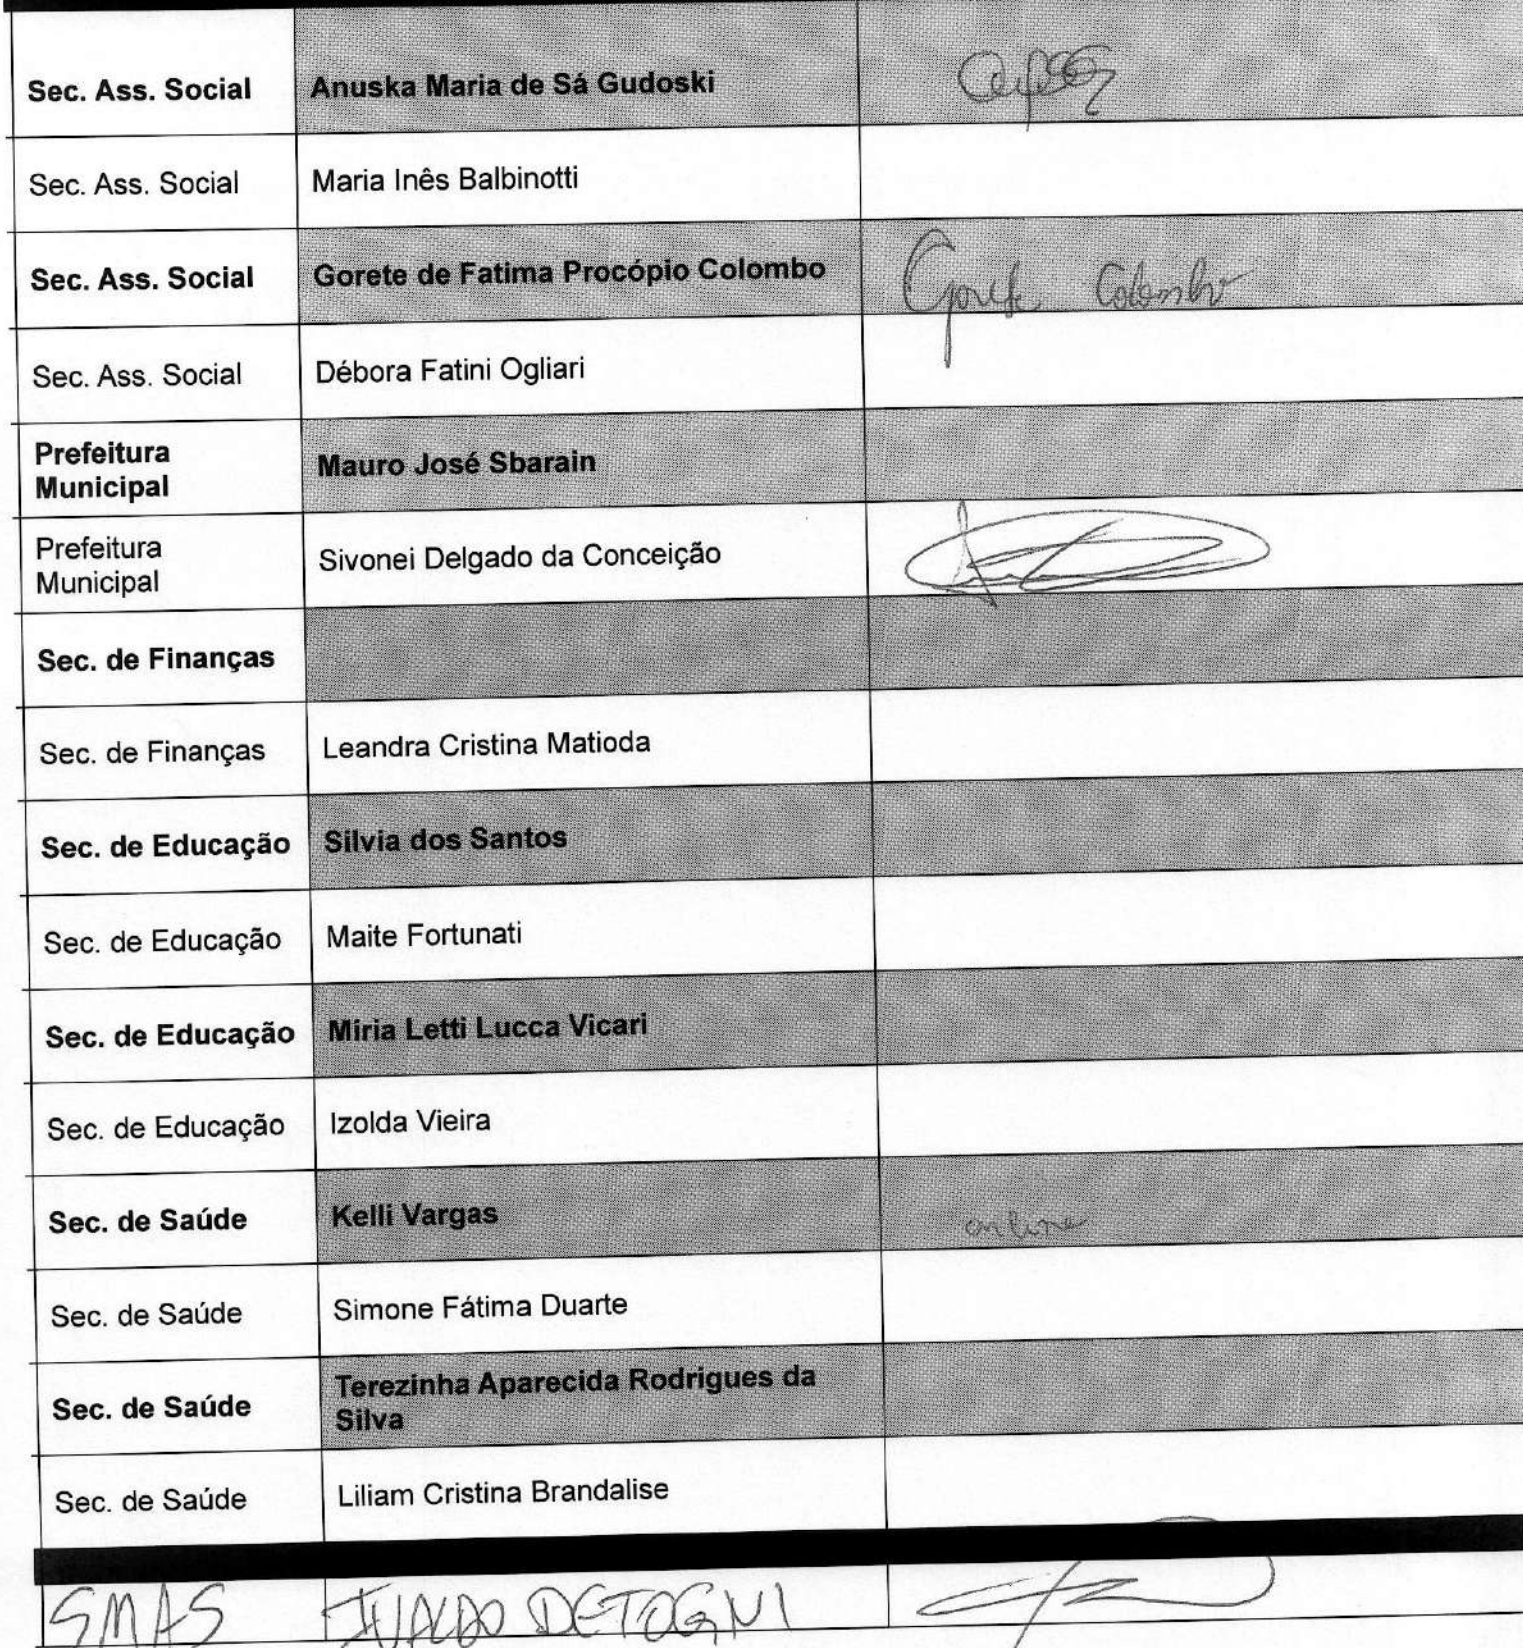 Sec. Ass. Social Anuska Maria de Sá Gudoski
Sec. Ass. Social Maria Inês Balbinotti
Sec. Ass. Social Gorete de Fatima Procópio Colombo Gorete Colombo
Sec. Ass. Social Débora Fatini Ogliari
Prefeitura
Municipal Mauro José Sbarain
Prefeitura
Municipal Sivonei Delgado da Conceição
Sec. de Finanças
Sec. de Finanças Leandra Cristina Matioda
Sec. de Educação Silvia dos Santos
Sec. de Educação Maite Fortunati
Sec. de Educação Miria Letti Lucca Vicari
Sec. de Educação Izolda Vieira
Sec. de Saúde Kelli Vargas online
Sec. de Saúde Simone Fátima Duarte
Sec. de Saúde Terezinha Aparecida Rodrigues da
Silva
Sec. de Saúde Liliam Cristina Brandalise
SMAS IVALDO DETOGNI